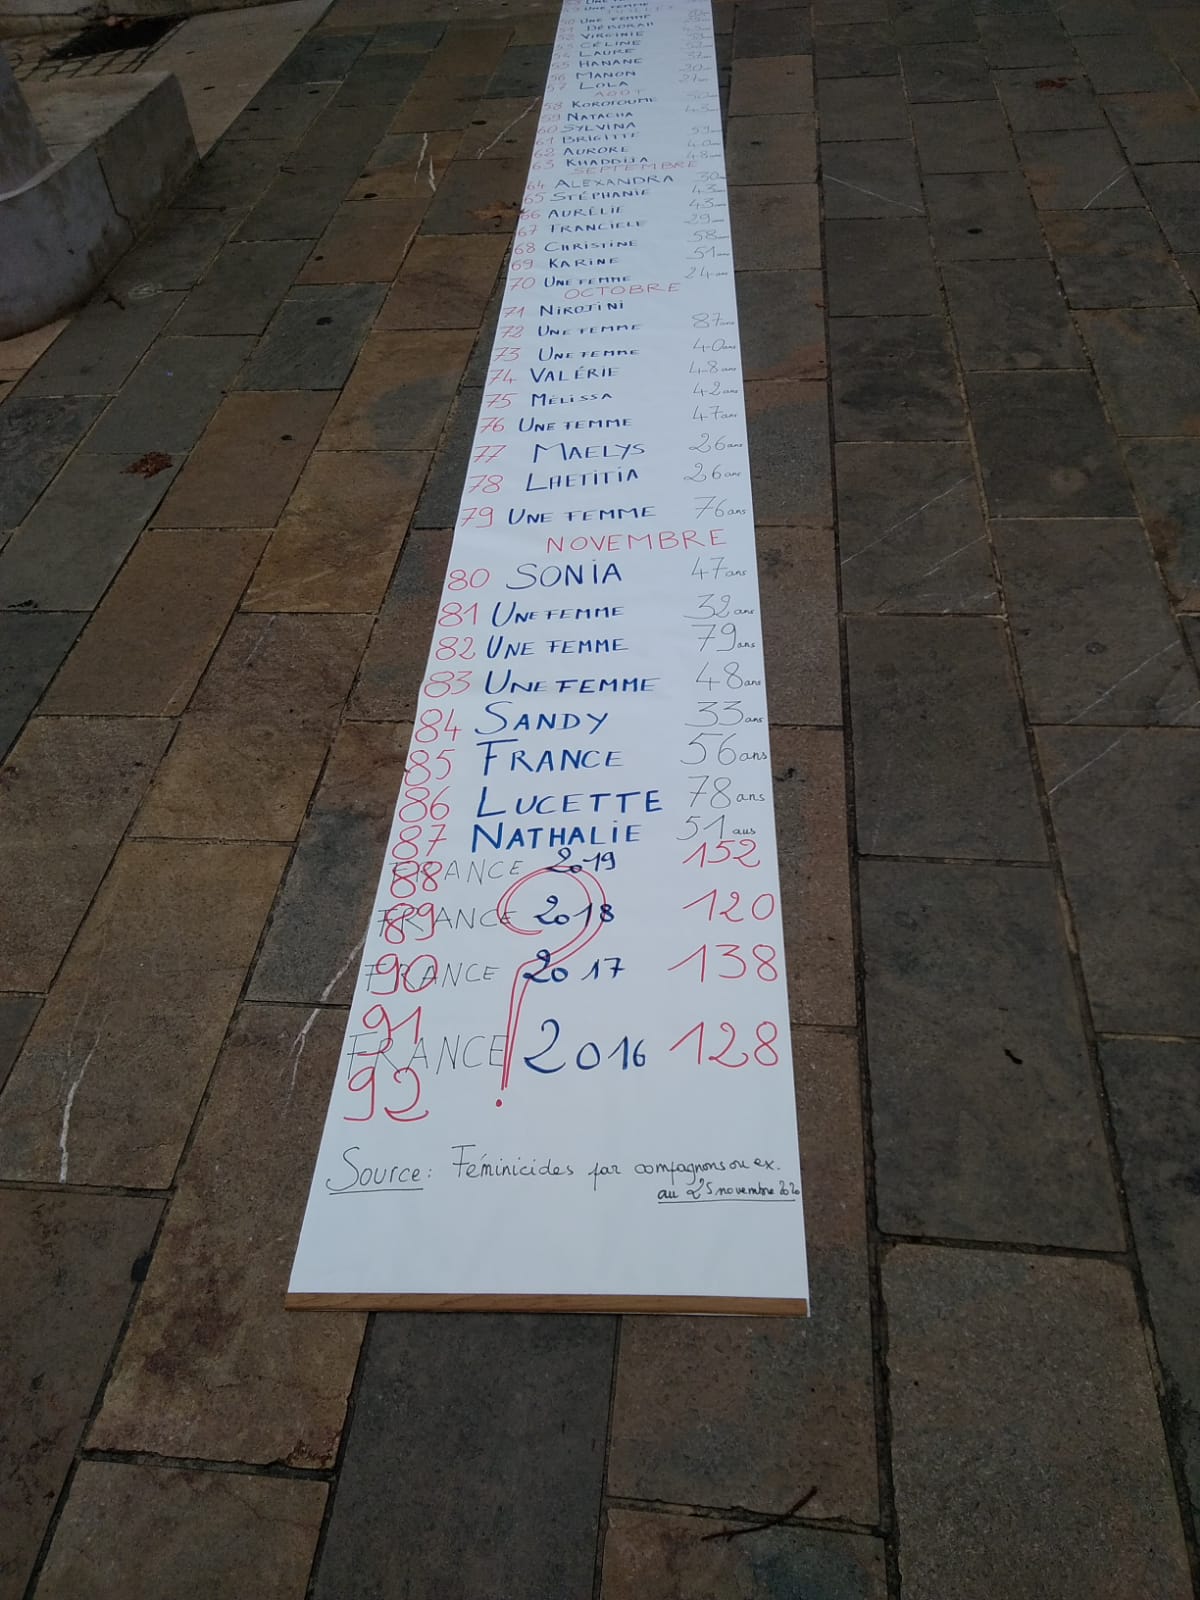 UNE FEMME
50 UNE FEMME
51 DÉBORAH
52 VIRGINIE
53 CÉLINE
54 LAURE
55 HANANE
56 MANON
57 LOLA
AOUT
58 KOROTOUME
59 NATACHA 43ans
60 SYLVINA
61 BRIGITTE
62 AURORE 40ans
63 KHADDIJA 48ans
SEPTEMBRE
64 ALEXANDRA 30ans
65 STÉPHANIE 43ans
66 AURÉLIE 43ans
67 FRANCIELE 29ans
68 CHRISTINE 58ans
69 KARINE 51ans
70 UNE FEMME 24ans
OCTOBRE
71 NIROJINI
72 UNE FEMME 87ans
73 UNE FEMME 40ans
74 VALÉRIE 48ans
75 MÉLISSA 42ans
76 UNE FEMME 47ans
77 MAELYS 26ans
78 LHETITIA 26ans
79 UNE FEMME 76ans
NOVEMBRE
80 SONIA 47ans
81 UNE FEMME 32ans
82 UNE FEMME 79ans
83 UNE FEMME 48ans
84 SANDY 33ans
85 FRANCE 56ans
86 LUCETTE 78ans
87 NATHALIE 51ans
88 FRANCE 2019 152
89 FRANCE 2018 120
90 FRANCE 2017 138
91
FRANCE 2016 128
92
?
Source: Féminicides par compagnons ou ex.
au 25 novembre 2020